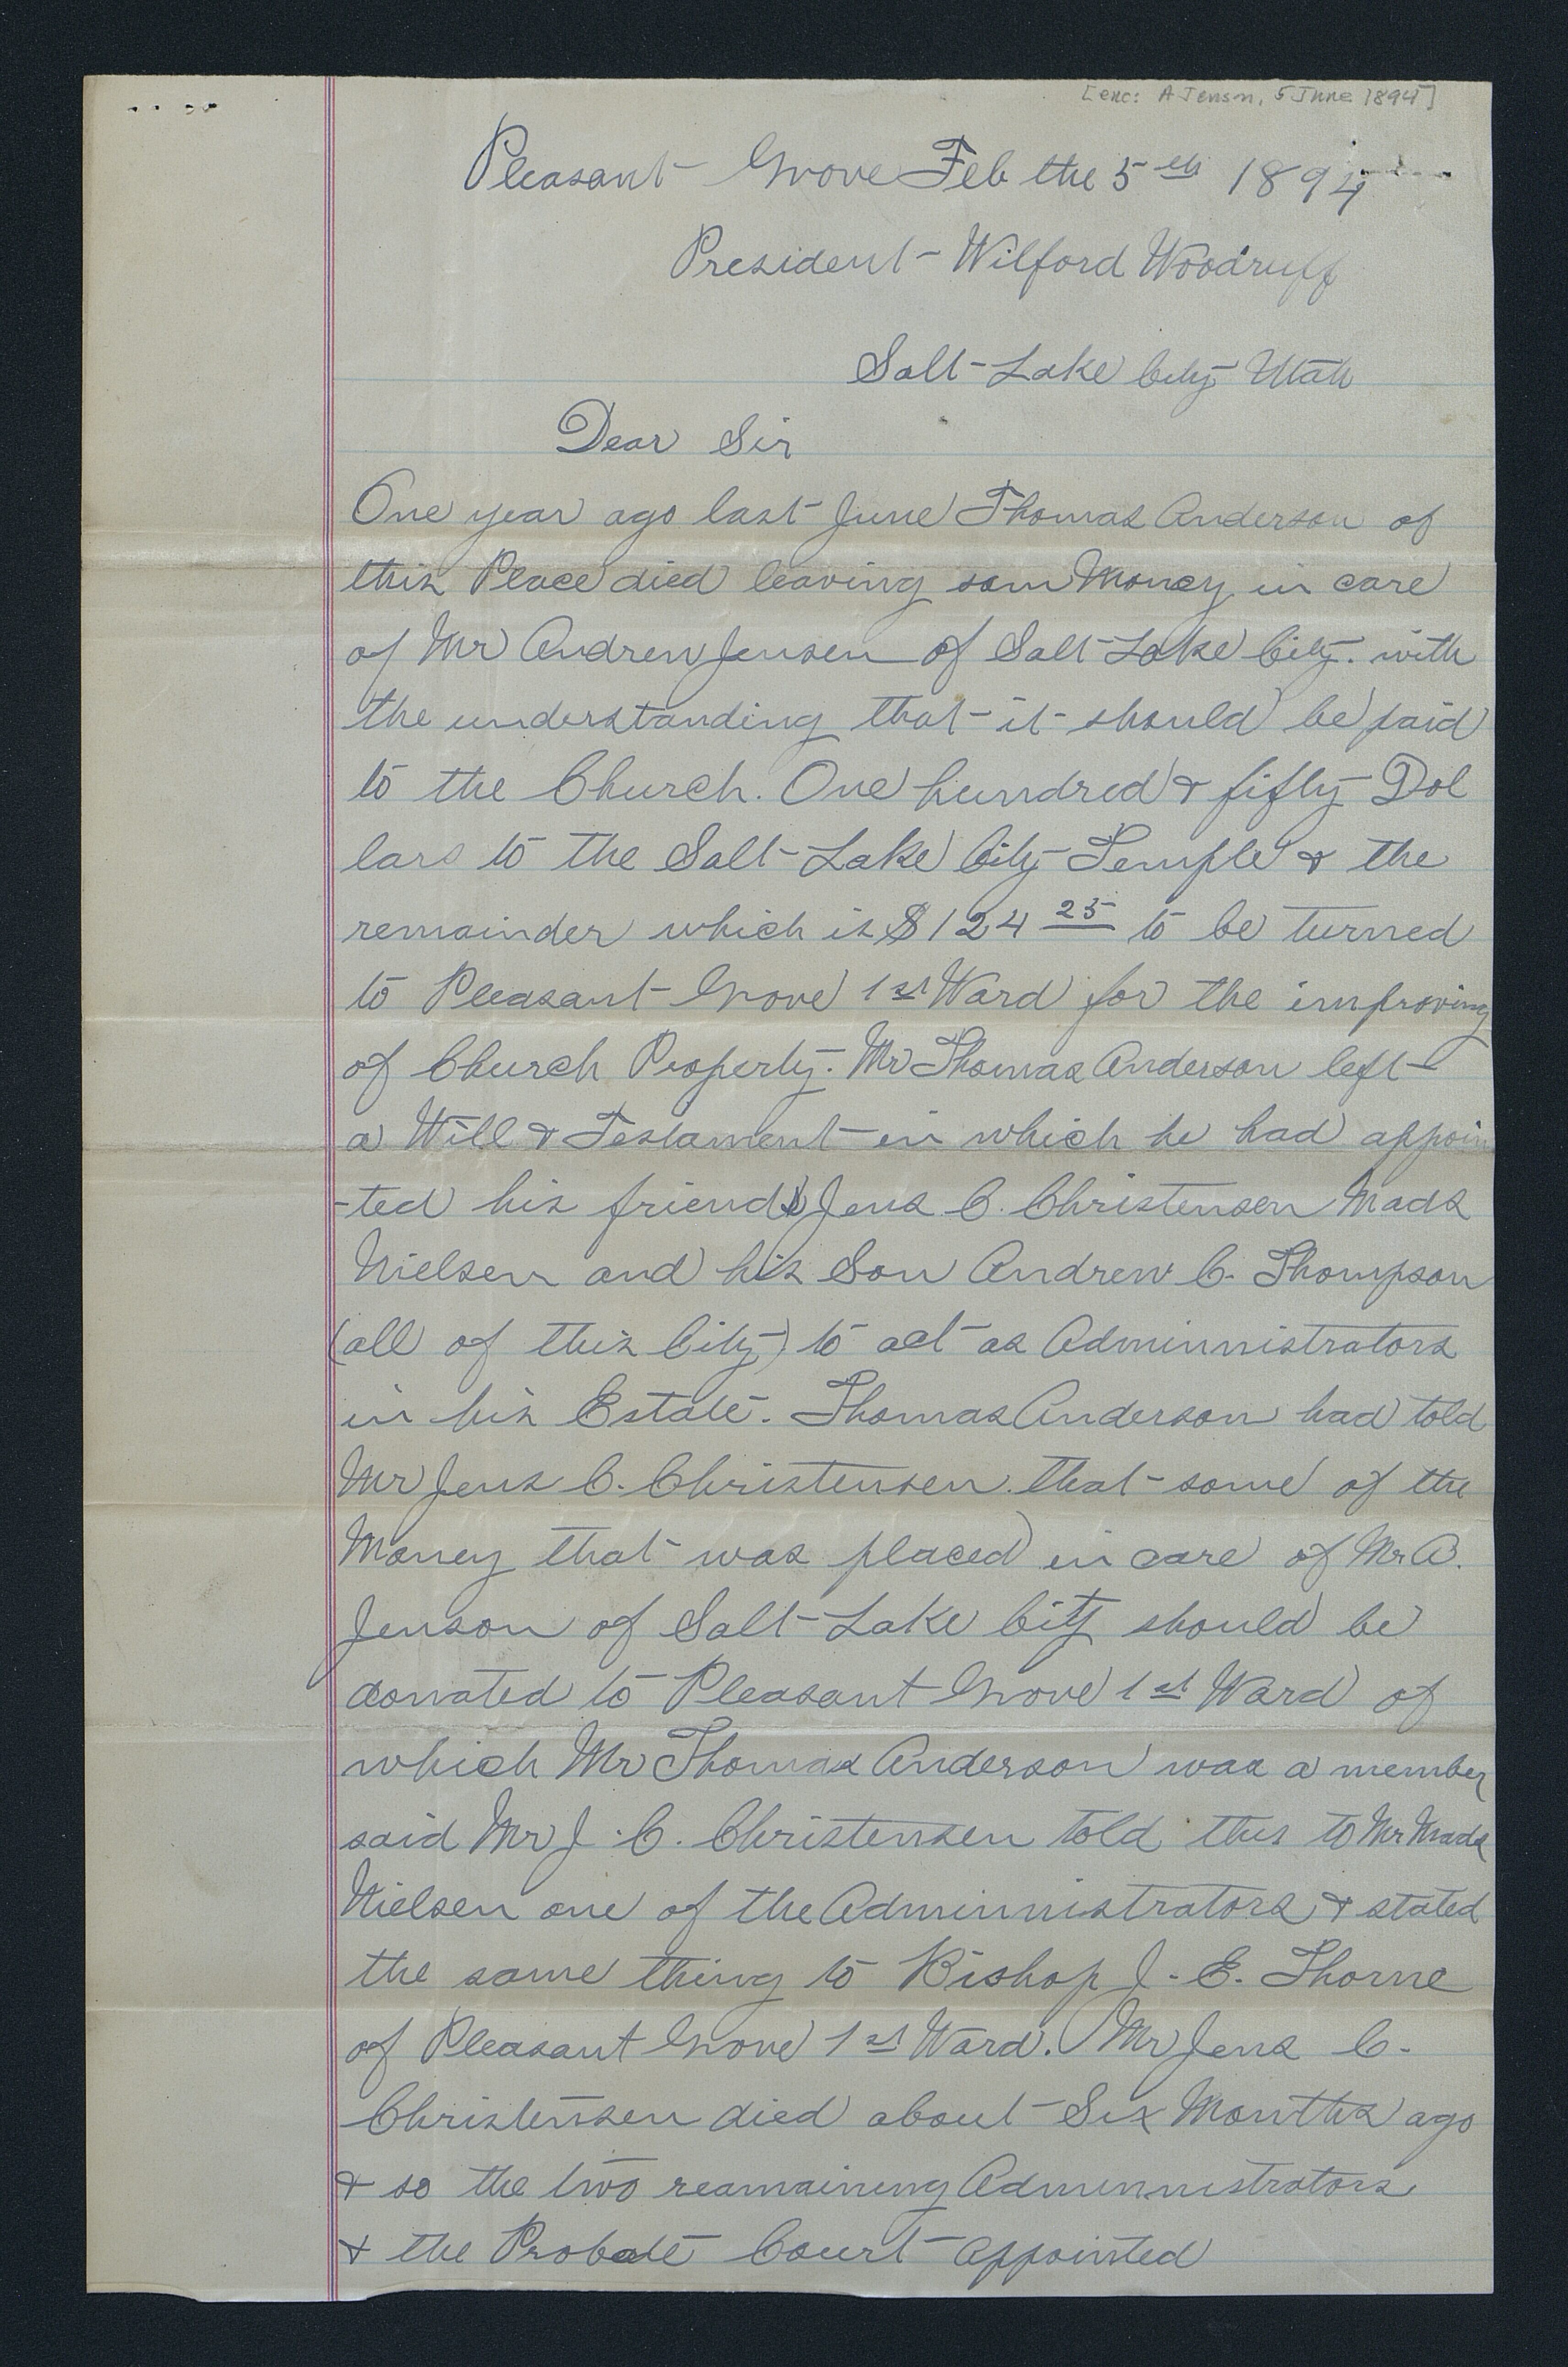 [enc: A Jenson, 5 June 1894]
Pleasant Grove Feb the 5th 1894
President Wilford Woodruff
Salt Lake City Utah
Dear Sir
One year ago last June Thomas Anderson of
this Place died leaving som Money in care
of Mr Andrew Jensen of Salt Lake City. with
the understanding that it should be paid
to the Church. One hundred & fifty Dol
lars to the Salt Lake City Temple & the
remainder which is $124 25 to be turned
to Pleasant Grove 1st Ward for the improving
of Church Property. Mr Thomas Anderson left
a Will & Testament in which he had appoin
-ted his friends Jens C. Christensen Mads
Nielsen and his Son Andrew C. Thompson
(all of this City) to act as Adminnistrators
in his Estate. Thomas Anderson had told
Mr Jens C. Christensen that some of the
Money that was placed in care of Mr A.
Jenson of Salt Lake City should be
donated to Pleasant Grove 1st Ward of
which Mr Thomas Anderson was a member
said Mr J. C. Christensen told this to Mr Mads
Nielsen one of the Adminnistrators & stated
the same thing to Bishop J. E. Thorne
of Pleasant Grove 1st Ward. Mr Jens C.
Christensen died about Six Months ago
& so the two reamaining Adminnistrators
& the Probate Court appointed